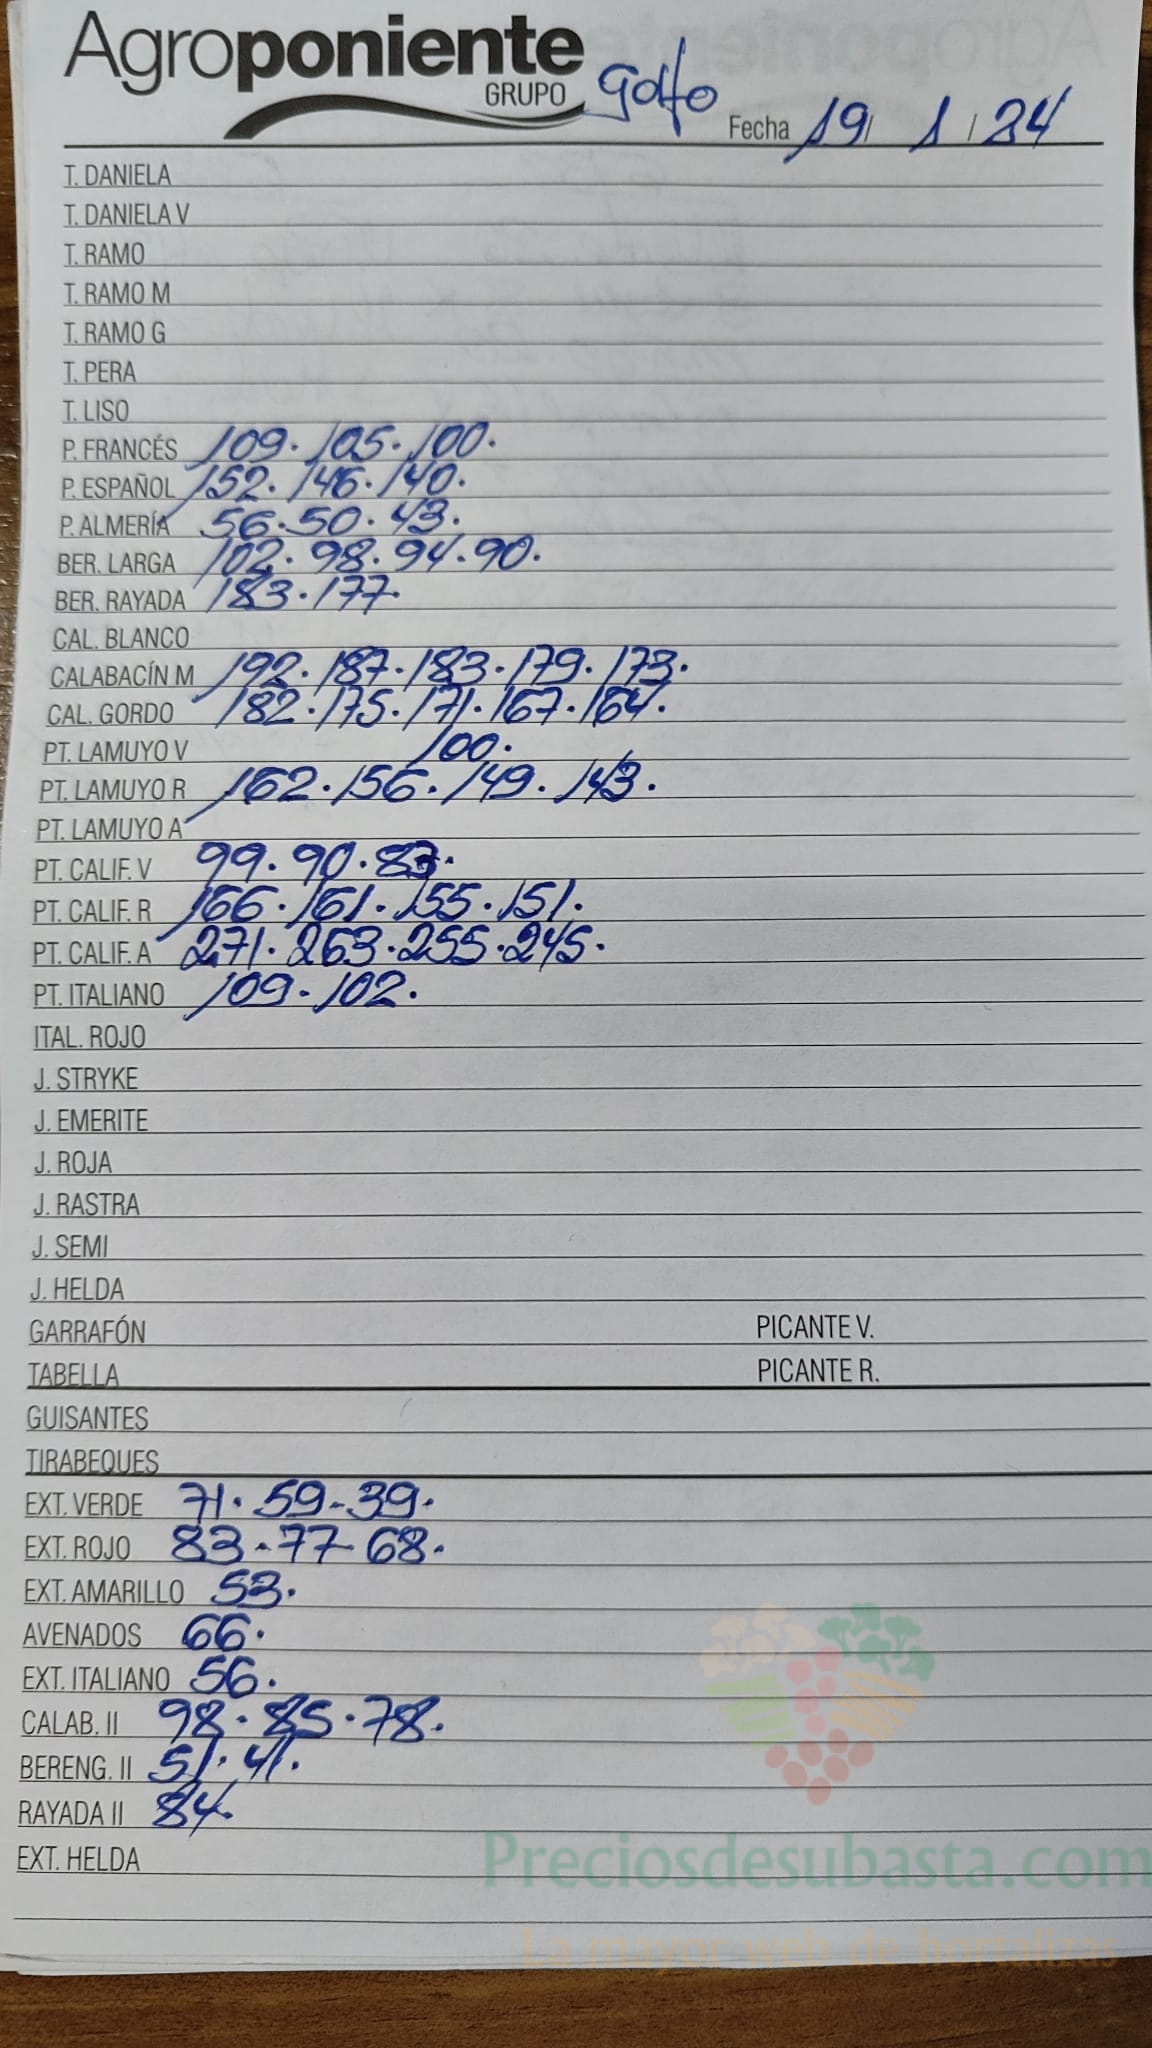 Agroponiente
GRUPO
golfo
Fecha 19/ 1 / 24
T. DANIELA
T. DANIELA V
T. RAMO
T. RAMO M
T. RAMO G
T. PERA
T. LISO
P. FRANCÉS 109. 105. 100.
P. ESPAÑOL 152. 146. 140.
P. ALMERÍA 56. 50. 43.
BER. LARGA 102. 98. 94. 90.
BER. RAYADA 183. 177.
CAL. BLANCO
CALABACÍN M 192. 187. 183. 179. 173.
CAL. GORDO 182. 175. 171. 167. 164.
PT. LAMUYO V 100.
PT. LAMUYO R 162. 156. 149. 143.
PT. LAMUYO A
PT. CALIF. V 99. 90. 83.
PT. CALIF. R 166. 161. 155. 151.
PT. CALIF. A 271. 263. 255. 245.
PT. ITALIANO 109. 102.
ITAL. ROJO
J. STRYKE
J. EMERITE
J. ROJA
J. RASTRA
J. SEMI
J. HELDA
GARRAFÓN PICANTE V.
TABELLA PICANTE R.
GUISANTES
TIRABEQUES
EXT. VERDE 71. 59. 39.
EXT. ROJO 83. 77. 68.
EXT. AMARILLO 53.
AVENADOS 66.
EXT. ITALIANO 56.
CALAB. II 98. 85. 78.
BERENG. II 51. 41.
RAYADA II 84.
EXT. HELDA
Preciosdesubasta.com
La mayor web de hortalizas